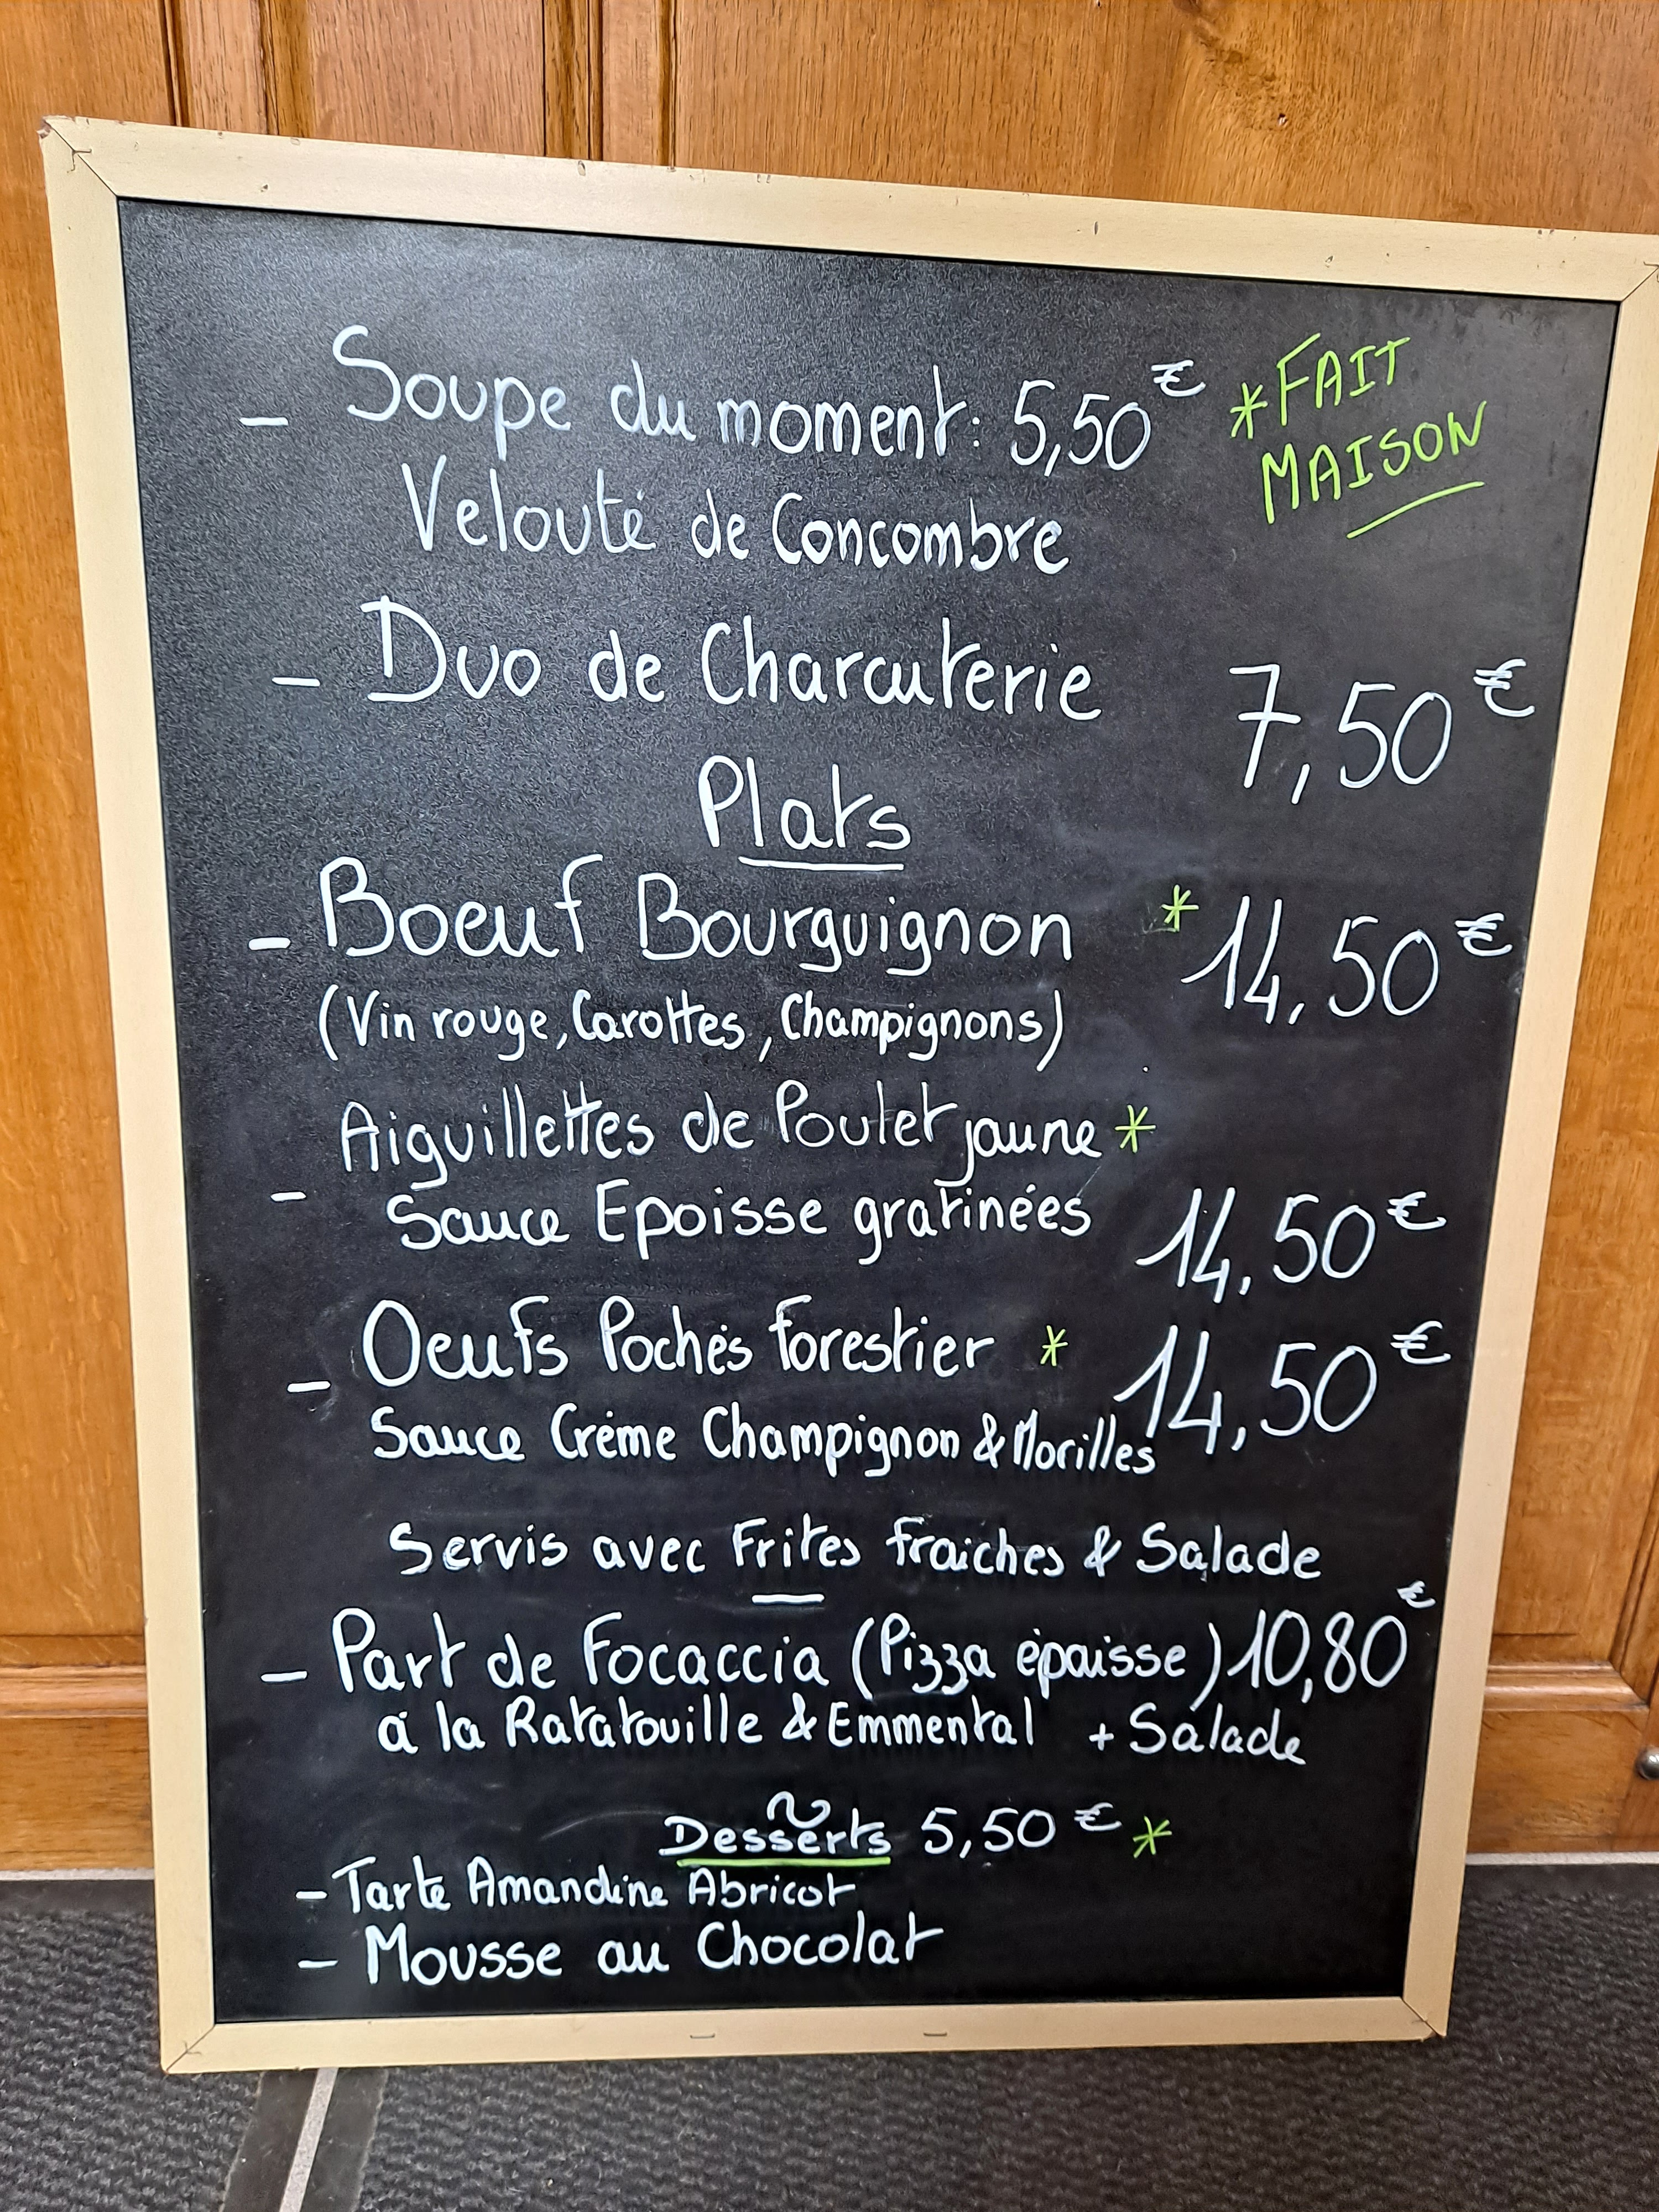 - Soupe du moment: 5,50€ *FAIT
MAISON
Velouté de Concombre
- Duo de Charcuterie 7,50€
Plats
- Boeuf Bourguignon * 14,50€
(Vin rouge, Carottes, Champignons)
Aiguillettes de Poulet jaune *
- Sauce Epoisse gratinées 14,50€
- Oeufs Pochés forestier * 14,50€
Sauce Crème Champignon & Morilles
Servis avec Frites fraîches & Salade
- Part de Focaccia (Pizza épaisse) 10,80€
à la Ratatouille & Emmental + Salade
Desserts 5,50€ *
- Tarte Amandine Abricot
- Mousse au Chocolat